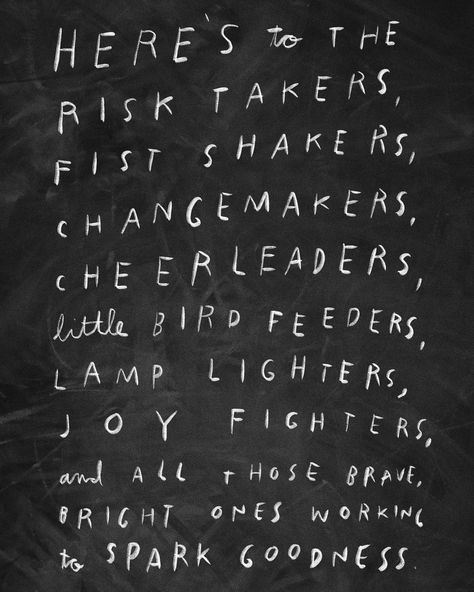 HERE'S to THE
RISK TAKERS,
FIST SHAKERS,
CHANGEMAKERS,
CHEERLEADERS,
little BIRD FEEDERS,
LAMP LIGHTERS,
JOY FIGHTERS,
and ALL THOSE BRAVE,
BRIGHT ONES WORKING
to SPARK GOODNESS.